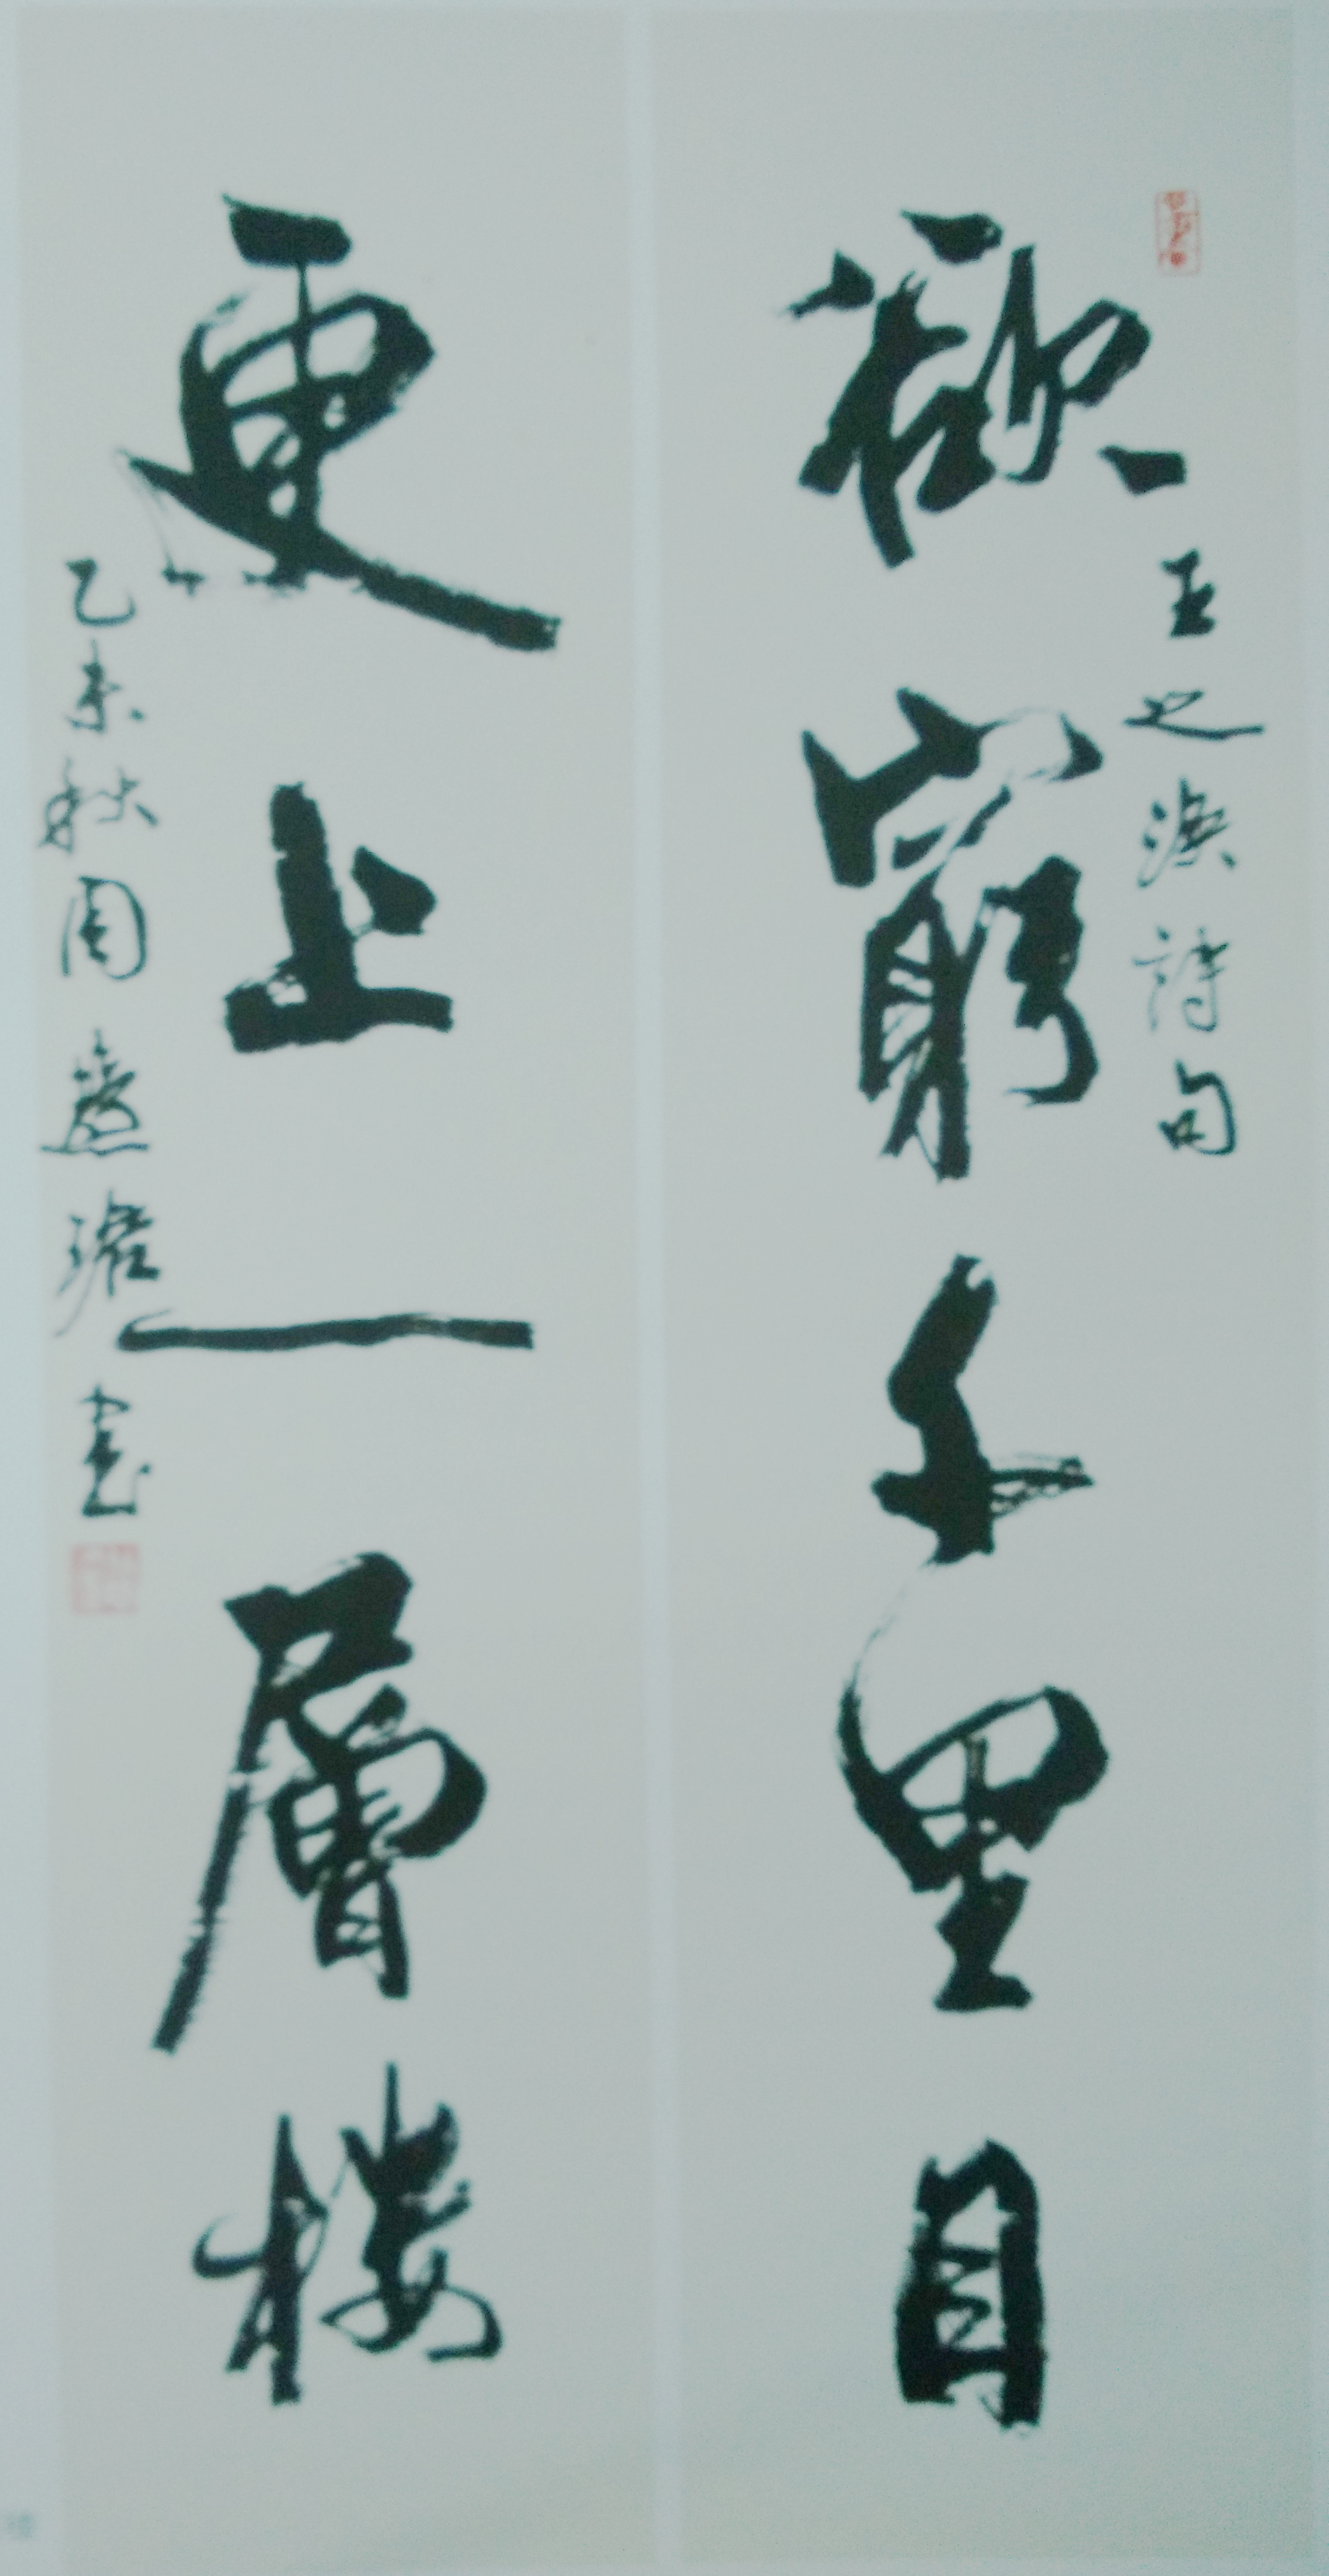 欲窮千里目
王之渙詩句
更上一層樓
乙未秋周燕瑤書